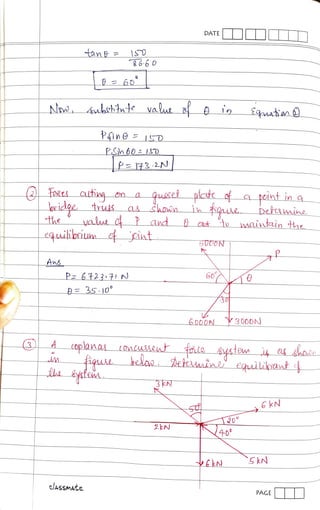 DATE
tan θ = 150
8660
θ = 60°
Now, substitute value of θ in Equation ①
P sin θ = 150
P sin 60 = 150
P = 173.2 N
② Forces acting on a gusset plate of a joint in a
bridge truss as shown in figure. Determine
the value of P and θ to maintain the
equilibrium of joint.
5000N
P
60°
θ
Ans.
P = 6723.71 N
θ = 35.10°
30
6000N
3000N
③ A coplanar concurrent force system is as shown
in figure below. Determine equilibrant of
the system.
3 kN
6 kN
50°
20°
2kN
40°
5 kN
6 kN
classmate
PAGE